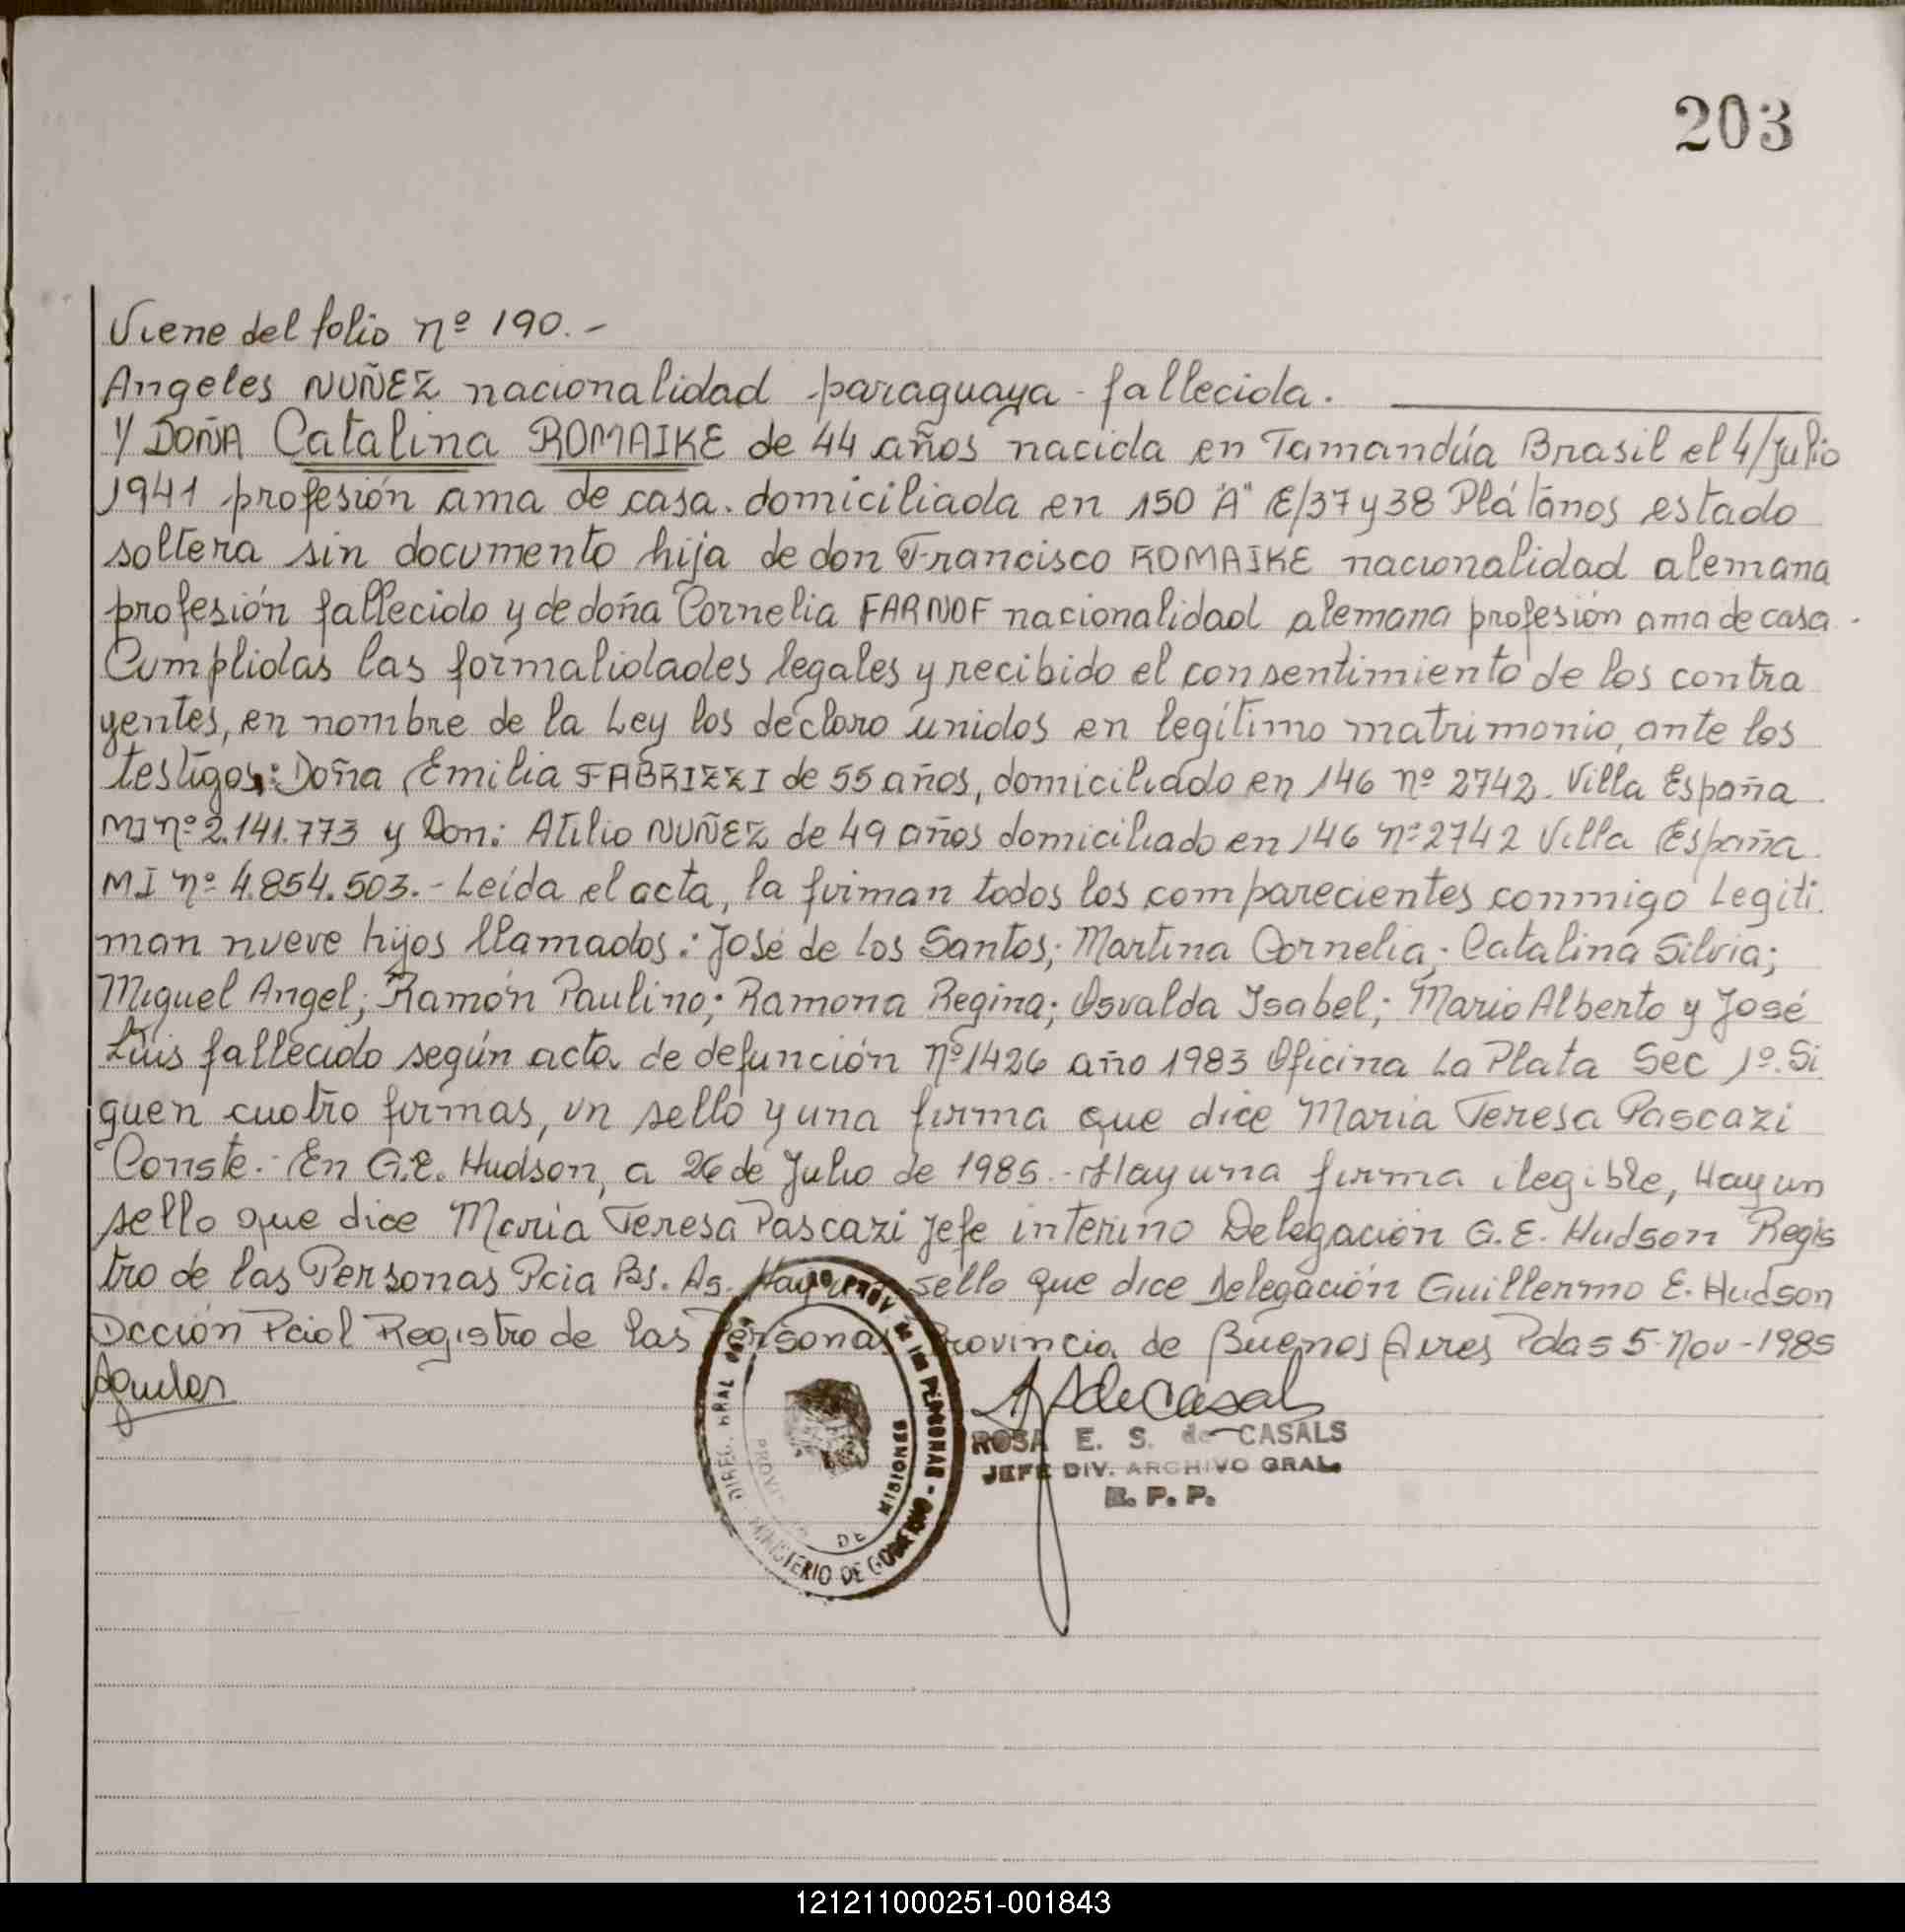 203
Viene del folio nº 190.-
Angeles NUÑEZ nacionalidad paraguaya - fallecida.
Y DOÑA Catalina ROMAIKE de 44 años nacida en Tamandúa Brasil el 4/Julio
1941 profesión ama de casa. domiciliada en 150 "A" E/37 y 38 Plátanos estado
soltera sin documento hija de don Francisco ROMAIKE nacionalidad alemana
profesión fallecido y de doña Cornelia FARNOF nacionalidad alemana profesión ama de casa.
Cumplidas las formalidades legales y recibido el consentimiento de los contra
yentes, en nombre de la Ley los declaro unidos en legítimo matrimonio, ante los
testigos: Doña Emilia FABRIZZI de 55 años, domiciliado en 146 nº 2742. Villa España.
MI nº 2.141.773 y Don: Atilio NUÑEZ de 49 años domiciliado en 146 nº 2742 Villa España.
MI nº 4.854.503.- Leída el acta, la firman todos los comparecientes conmigo Legiti.
man nueve hijos llamados: José de los Santos; Martina Cornelia; Catalina Silvia;
Miguel Angel; Ramón Paulino; Ramona Regina; Osvalda Isabel; Mario Alberto y José
Luis fallecido según acta de defunción nº 1426 año 1983 Oficina La Plata Sec 1º. Si
guen cuatro firmas, un sello y una firma que dice Maria Teresa Pascazi
Conste.- En G.E. Hudson, a 26 de Julio de 1985.- Hay una firma ilegible, Hay un
sello que dice María Teresa Pascazi Jefe interino Delegación G. E. Hudson Regis
tro de las Personas Pcia Bs. As. Hay un sello que dice Delegación Guillermo E. Hudson
Dcción Pcial Registro de las Personas Provincia de Buenos Aires Pdas 5-Nov-1985
DIREC. GRAL PROV. de las PERSONAS - MINISTERIO DE GOBIERNO
PROVINCIA DE MISIONES
ROSA E. S. de CASALS
JEFE DIV. ARCHIVO GRAL.
R. P. P.
121211000251-001843